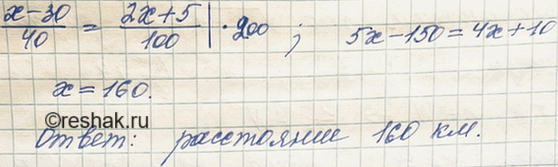 x-30/40 = 2x+5/100 | ·200 ; 5x-150=4x+10
x=160.
©reshak.ru
Ответ: расстояние 160 км.